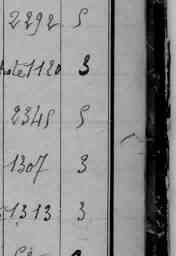 2292 5
1120 3
2345 5
1307 3
1313 3